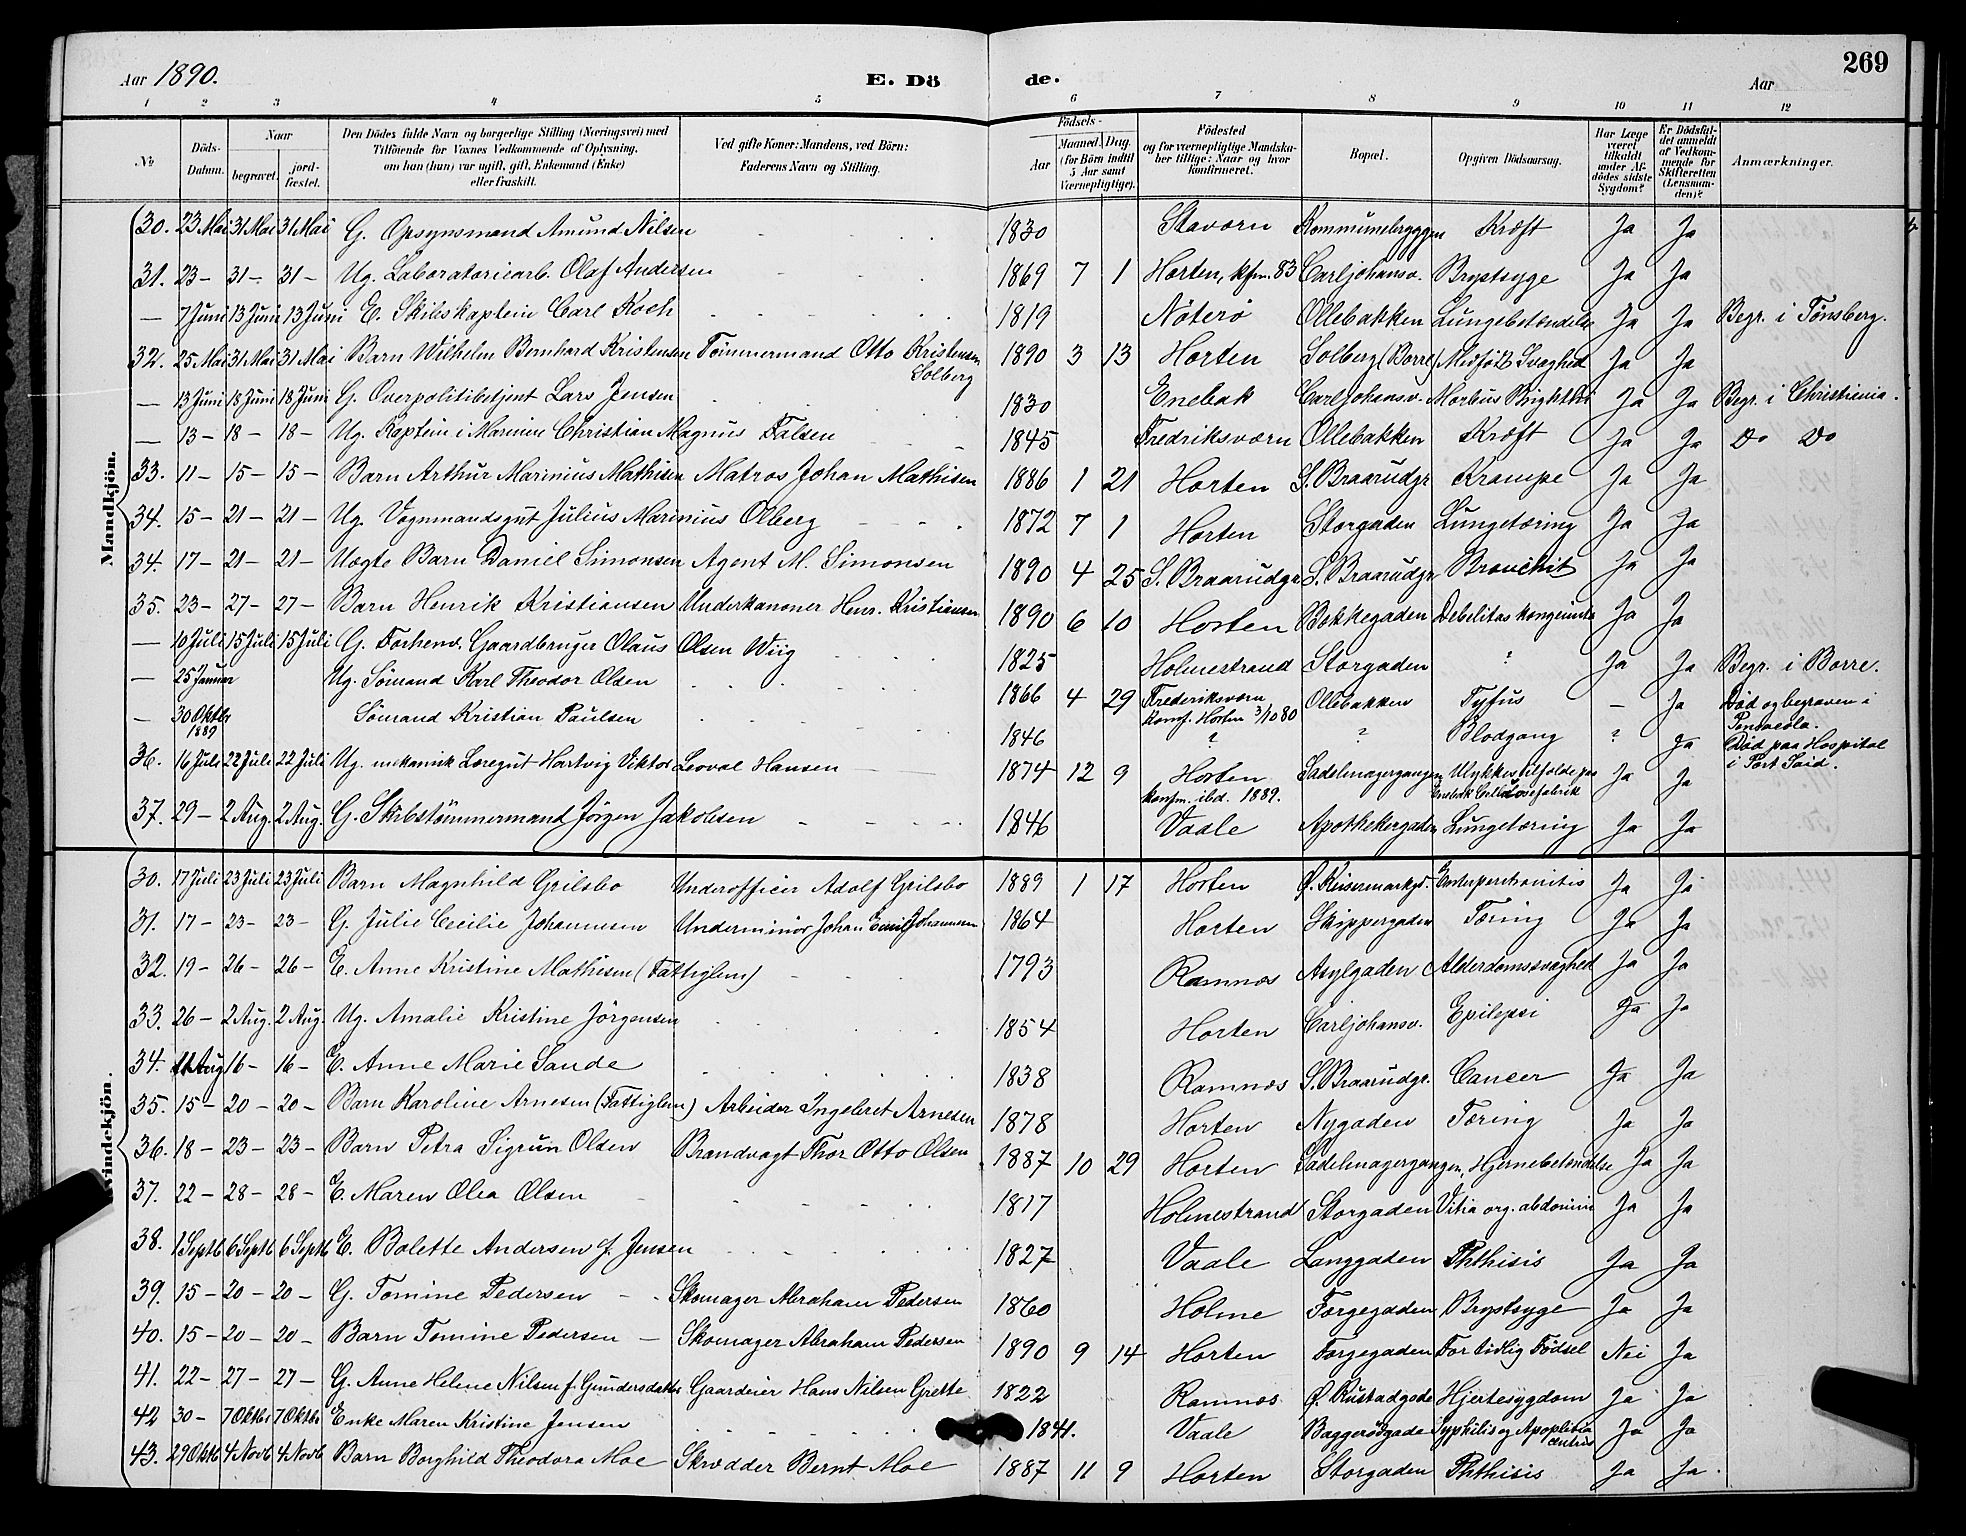 Aar 1890. E. Dö de. Aar 269
1 2 3 4 5 6 7 8 9 10 11 12
No Döds-Datum. Naar begravet. jord-fæstet. Den Dödes fulde Navn og borgerlige Stilling (Næringsvei) med Tilföiende for Voxnes Vedkommende af Oplysning, om han (hun) var ugift, gift, Enkemand (Enke) eller fraskilt. Ved gifte Koner: Mandens, ved Börn: Faderens Navn og Stilling. Födsels- Aar Maaned. Dag. (for Börn indtil 5 Aar samt Værnepligtige). Födested og for værnepligtige Mandska-ber tillige: Naar og hvor konfirmeret. Bopæl. Opgiven Dödsaarsag. Har Læge været tilkaldt under Af-dödes sidste Sygdom? Er Dödsfal-det anmeldt af Vedkom-mende for Skifteretten (Lensman-den)? Anmærkninger.
Mandkjön.
30. 23 Mai 31 Mai 31 Mai G. Opsynsmand Amund Nilsen 1830 Stavern Kommunebryggen Kræft Ja Ja
31. 23- 31- 31- Ug. Laboratoriearb. Olaf Andersen 1869 7 1 Horten, kfm. 83 Carljohansv. Brystsyge Ja Ja
— 7 Juni 13 Juni 13 Juni E. Skibskaptein Carl Koch 1819 Nöterö Ollebakken Lungebetændelse Ja Ja Begr. i Tönsberg.
32. 25 Mai 31 Mai 31 Mai Barn Wilhelm Bernhard Kristensen Tömmermand Otto Kristensen Solberg 1890 3 13 Horten Solberg (Borre) Medfödt Svaghed Ja Ja
— 13 Juni 18 Juni 18 Juni G. Overpolitibetjent Lars Jensen 1830 Enebak Carljohansv. Morbus Brightii Ja Ja Begr. i Christiania.
— 13- 18- 18- Ug. Kaptein i Marinen Christian Magnus Falsen 1845 Fredriksværn Ollebakken Kræft Ja Ja Do Do
33. 11- 15- 15- Barn Arthur Marinius Mathisen Matros Johan Mathisen 1886 1 21 Horten S. Braarudgr Krampe Ja Ja
34. 15- 21- 21- Ug. Vognmandsgut Julius Marinius Olberg 1872 7 1 Horten Storgaden Lungetæring Ja Ja
34. 17- 21- 21- Uægte Barn Daniel Simonsen Agent M. Simonsen 1890 4 25 S. Braarudgr S. Braarudgr Bronchit Ja Ja
35. 23- 27- 27- Barn Henrik Kristiansen Underkanoner Henr. Kristiansen 1890 6 10 Horten Bakkegaden Debilitas kongenita Ja Ja
— 10 Juli 15 Juli 15 Juli G. Forhenv. Gaardbruger Olaus Olsen Wiig 1825 Holmestrand Storgaden ? Ja Ja Begr. i Borre.
— 25 Januar Ug. Sömand Karl Theodor Olsen 1866 4 29 Frederiksværn konf. Horten 3/10 80 Ollebakken Tyfus — Ja Död og begraven i Pensacola.
— 30 Oktbr 1889 Sömand Kristian Paulsen 1846 ? ? Blodgang ? Ja Död paa Hospital i Port Said.
36. 16 Juli 22 Juli 22 Juli Ug. mekanik Læregut Hartvig Viktor Leoval Hansen 1874 12 9 Horten konfm. ibd. 1889. Sadelmagergangen Ulykkestilfælde paa Enebak Cellulosefabrik Ja Ja
37. 29- 2 Aug. 2 Aug. G. Skibstömmermand Jörgen Jakobsen 1846 Vaale Apothekergaden Lungetæring Ja Ja
Kvindekjön.
30. 17 Juli 23 Juli 23 Juli Barn Magnhild Grilsbo Underofficier Adolf Grilsbo 1889 1 17 Horten Ø. Keisermarkgd. Ja Ja
31. 17- 23- 23- G. Julie Cecilie Johannesen Underminör Johan Emil Johannesen 1864 Horten Skippergaden Tæring Ja Ja
32. 19- 26- 26- E. Anne Kristine Mathisen (Fattiglem) 1793 Ramnæs Asylgaden Alderdomssvaghed Ja Ja
33. 26- 2 Aug. 2 Aug. Ug. Amalie Kristine Jörgensen 1854 Horten Carljohansv. Epilepsi Ja Ja
34. 11 Aug 16- 16- E. Anne Marie Sande 1838 Ramnæs S. Braarudgr. Cancer Ja Ja
35. 15- 20- 20- Barn Karoline Arnesen (Fattiglem) Arbeider Ingebret Arnesen 1878 Horten Nygaden Tæring Ja Ja
36. 18- 23- 23- Barn Petra Sigrun Olsen Brandvagt Thor Otto Olsen 1887 10 29 Horten Sadelmagergangen Hjernebetændelse Ja Ja
37. 22- 28- 28- E. Maren Olea Olsen 1817 Holmestrand Storgaden Vitia org. abdomin Ja Ja
38. 1 Septb 6 Septb 6 Septb E. Bolette Andersen f. Jensen 1827 Vaale Langgaden Phthisis Ja Ja
39. 15- 20- 20- G. Tomine Pedersen Skomager Abraham Pedersen 1860 Holme Torgegaden Brystsyge Ja Ja
40. 15- 20- 20- Barn Tomine Pedersen Skomager Abraham Pedersen 1890 9 14 Horten Torgegaden For tidlig Födsel Nei Ja
41. 22- 27- 27- G. Anne Helene Nilsen f. Gundersdatter Gaardeier Hans Nilsen Grette 1822 Ramnæs Ø. Rustadgade Hjertesygdom Ja Ja
42 30- 7 Oktbr 7 Oktbr Enke Maren Kristine Jensen 1841. Vaale Baggerödgade Syphilis og Ja Ja
43. 29 Oktb 4 Novb 4 Novb Barn Borghild Theodora Moe Skrædder Bernt Moe 1887 11 9 Horten Storgaden Phthisis Ja Ja